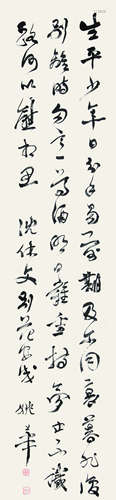 生平少年日分手易前期及尔同衰暮非復
别離時勿言一尊酒明日難重持夢中不識
路何以慰相思 沈休文别范安成 姚華